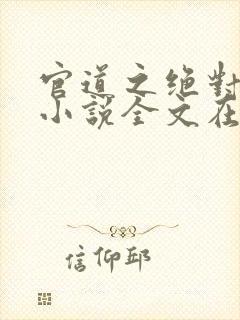 官道之绝對
小說全文在
信仰邱